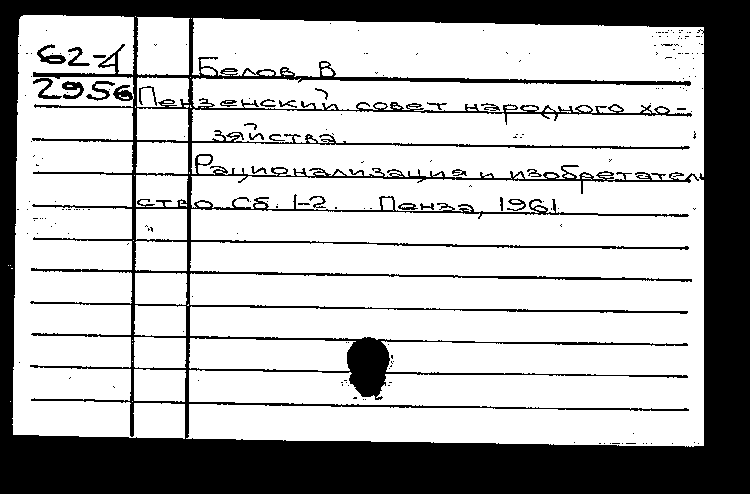 62-4 Белов, В
2956 Пензенский совет народного хо-
зяйства.
Рационализация и изобретатель
ство Сб. 1-2. Пенза, 1961